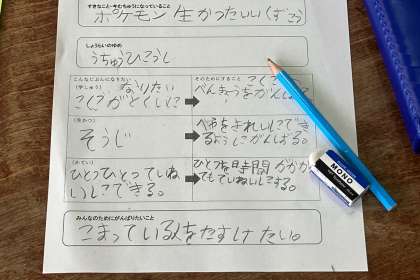 すきなこと・今むちゅうになっていること
ポケモン 生かつ たいいく(ずこう)
しょうらいのゆめ
うちゅうひこうし
こんなじぶんになりたい
(学しゅう)
なりたい
こくごがとくいに
そのためにすること
こくごの
べんきょうをがんばる
(生かつ)
そうじ
へやをきれいにでき
るようにがんばる。
(かてい)
ひとつひとつていね
いにできる。
ひとつを時間
ててていねいにする。
みんなのためにがんばりたいこと
こまっている人をたすけたい。
MONO